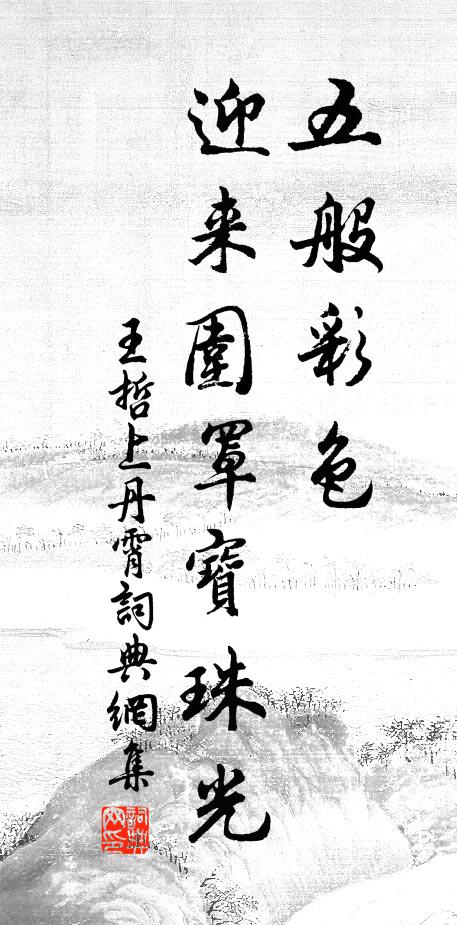 五般彩色
迎来圍罩寶珠光
王哲上丹霄詞典網集